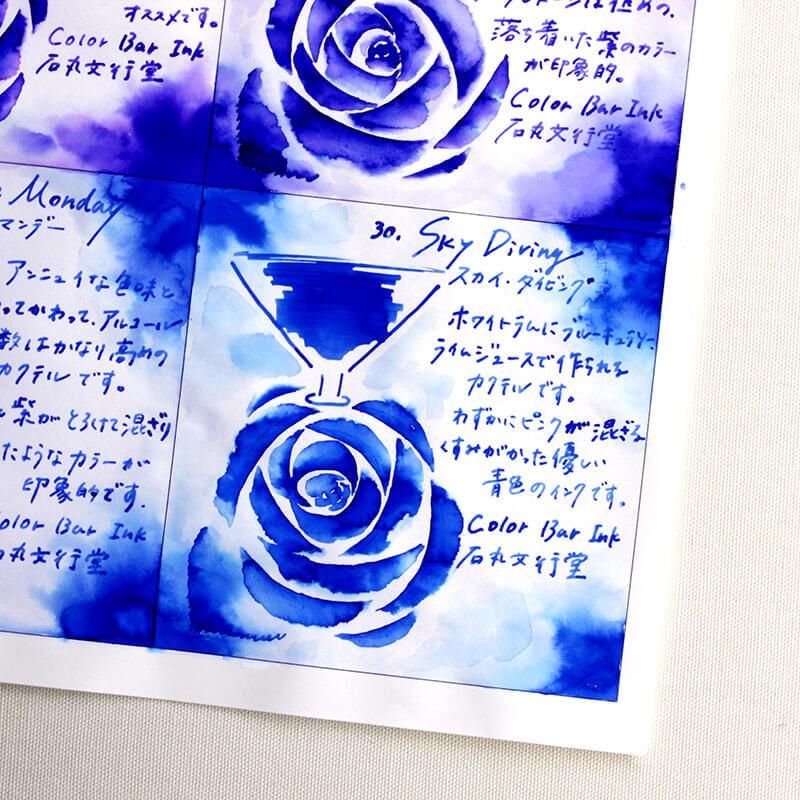 オススメです。
Color Bar Ink
石丸文行堂
落ち着いた紫のカラー
が印象的。
Color Bar Ink
石丸文行堂
Monday
マンデー
アンニュイな色味と
ってかわって、アルコール
数はかなり高めの
カクテルです。
紫がとろけて混ざり
たようなカラーが
印象的です。
Color Bar Ink
石丸文行堂
30. Sky Diving
スカイ・ダイビング
ホワイトラムにブルーキュラソー、
ライムジュースで作られる
カクテルです。
わずかにピンクが混ざる
くすみがかった優しい
青色のインクです。
Color Bar Ink
石丸文行堂